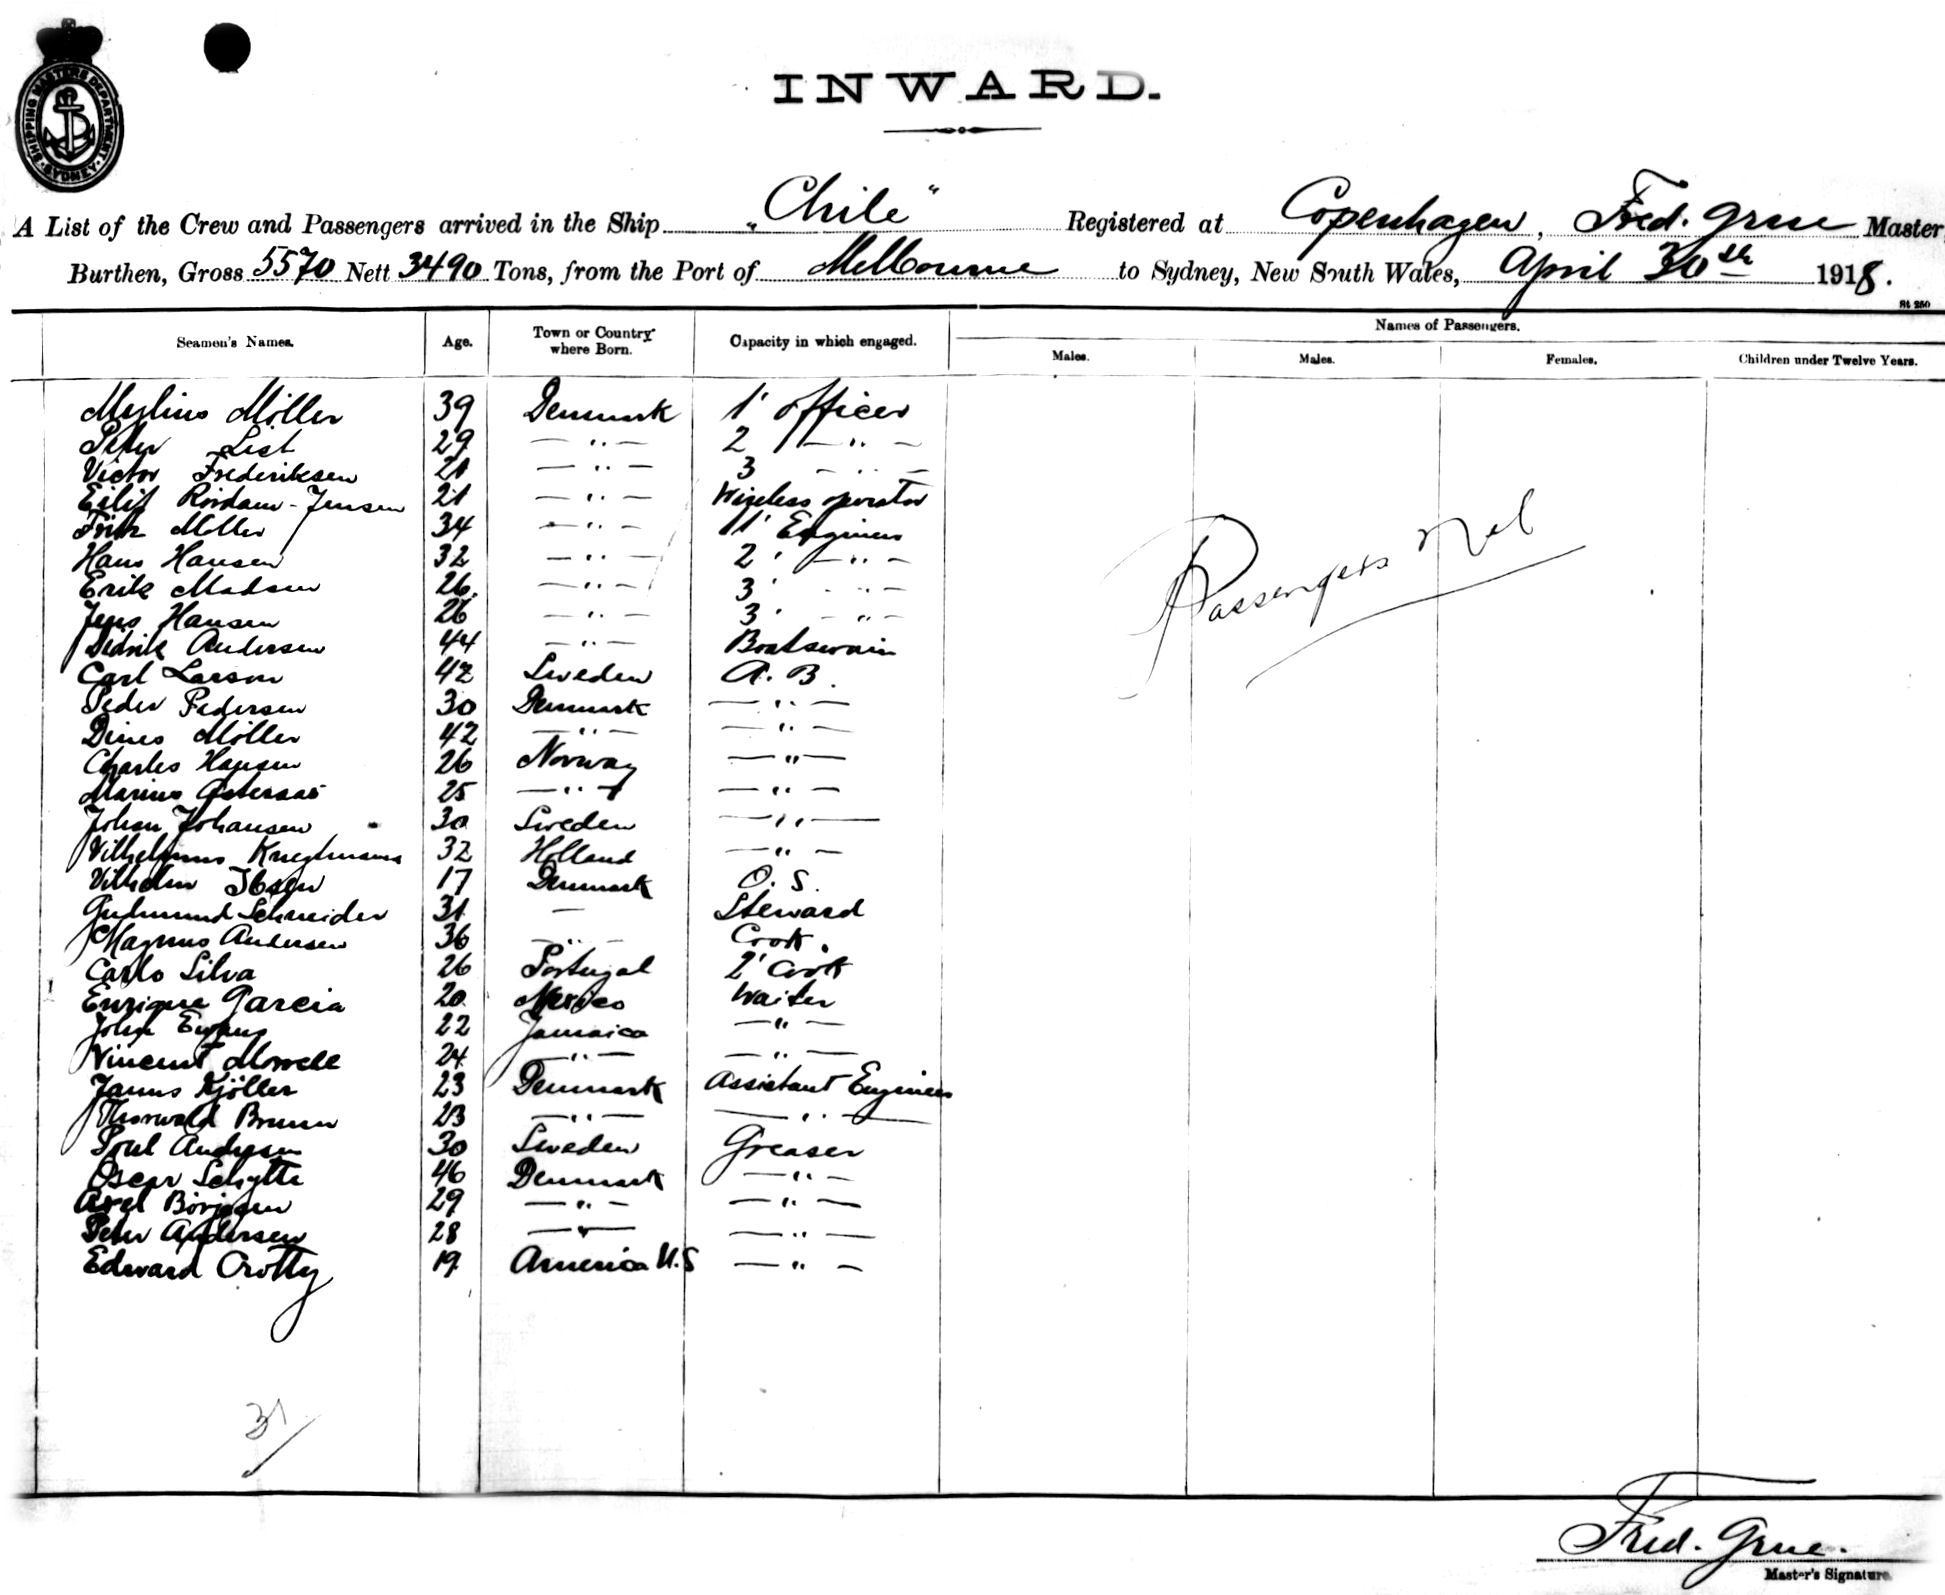 SHIPPING MASTERS DEPARTMENT SYDNEY
INWARD.
A List of the Crew and Passengers arrived in the Ship „Chile“ Registered at Copenhagen, Fred. Grue Master,
Burthen, Gross 5570 Nett 3490 Tons, from the Port of Melbourne to Sydney, New South Wales, April 30th 1918.
St 250
Seamen's Names. Age. Town or Country where Born. Capacity in which engaged. Names of Passengers.
Males. Males. Females. Children under Twelve Years.
Mylius Möller 39 Denmark 1' officer
Peter List 29 — „ — 2 — „ —
Victor Frederiksen 21 — „ — 3 — „ —
Eilif Rördam-Jensen 21 — „ — Wireless operator
Fritz Möller 34 — „ — 1' Engineer
Hans Hansen 32 — „ — 2' — „ —
Erik Madsen 26. — „ — 3' — „ —
Jens Hansen 26 — „ — 3' — „ —
Didrik Andersen 44 — „ — Boatswain
Carl Larson 42 Sweden A. B.
Peder Pedersen 30 Denmark — „ —
Dines Möller 42 — „ — — „ —
Charles Hansen 26 Norway — „ —
Marius 25 — „ — — „ —
Johan Johansen 30 Sweden — „ —
Vilhelmus 32 Holland — „ —
Vilhelm Ibsen 17 Denmark O. S.
Gudmund Schneider 31 — Steward
Magnus Andersen 36 — „ — Cook.
Carlo Silva 26 Portugal 2' Cook
Enrique Garcia 20 Mexico Waiter
John Evans 22 Jamaica — „ —
Vincent Morrell 24 — „ — — „ —
Janus Kjöller 23 Denmark Assistant Engineer
Thorwald Bruun 23 — „ — — „ —
Poul Andersen 30 Sweden Greaser
Oscar Schytte 46 Denmark — „ —
Axel Börjesen 29 — „ — — „ —
Peter Andersen 28 — „ — — „ —
Edward Crotty 19 America U.S — „ —
Passengers Nil
31
Fred. Grue.
Master's Signature.